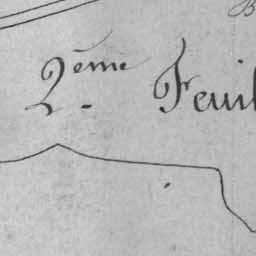 2.ème Feuil